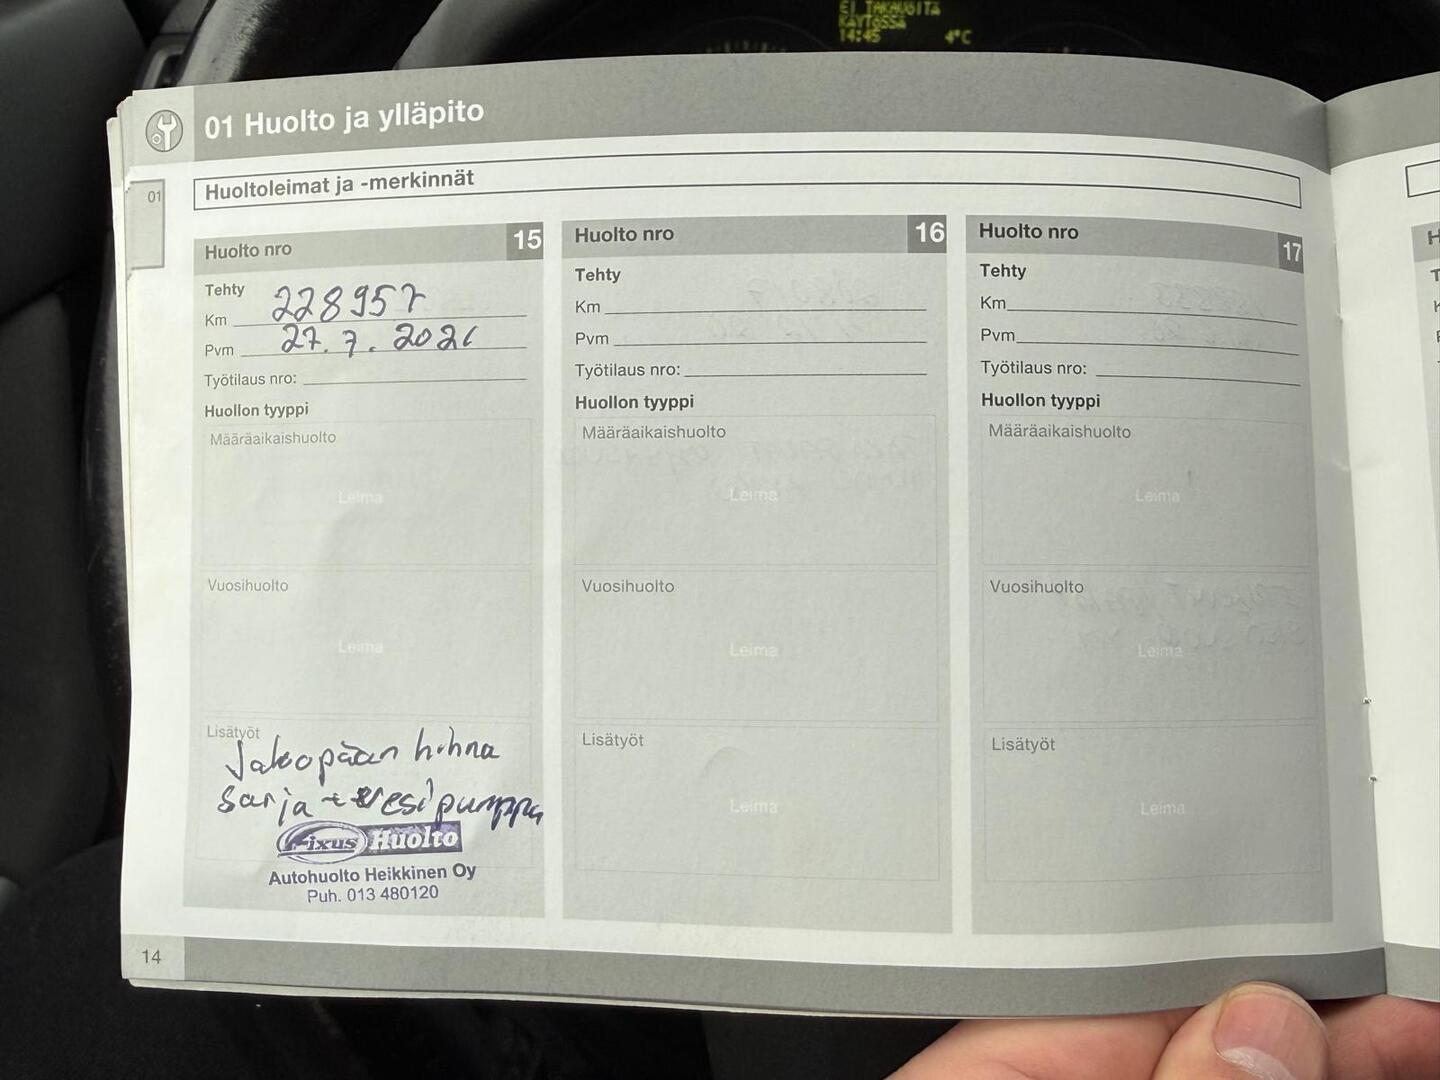 EI TAKAUOITA
KÄYTÖSSÄ
14:45 4°C
01 Huolto ja ylläpito
01
Huoltoleimat ja -merkinnät
Huolto nro 15
Tehty
Km 228957
Pvm 27.7.2021
Työtilaus nro:
Huollon tyyppi
Määräaikaishuolto
Leima
Vuosihuolto
Leima
Lisätyöt
Jakopään hihna
sarja + vesipumppu
Fixus Huolto
Autohuolto Heikkinen Oy
Puh. 013 480120
Huolto nro 16
Tehty
Km
Pvm
Työtilaus nro:
Huollon tyyppi
Määräaikaishuolto
Leima
Vuosihuolto
Leima
Lisätyöt
Leima
Huolto nro 17
Tehty
Km
Pvm
Työtilaus nro:
Huollon tyyppi
Määräaikaishuolto
Leima
Vuosihuolto
Leima
Lisätyöt
Leima
14